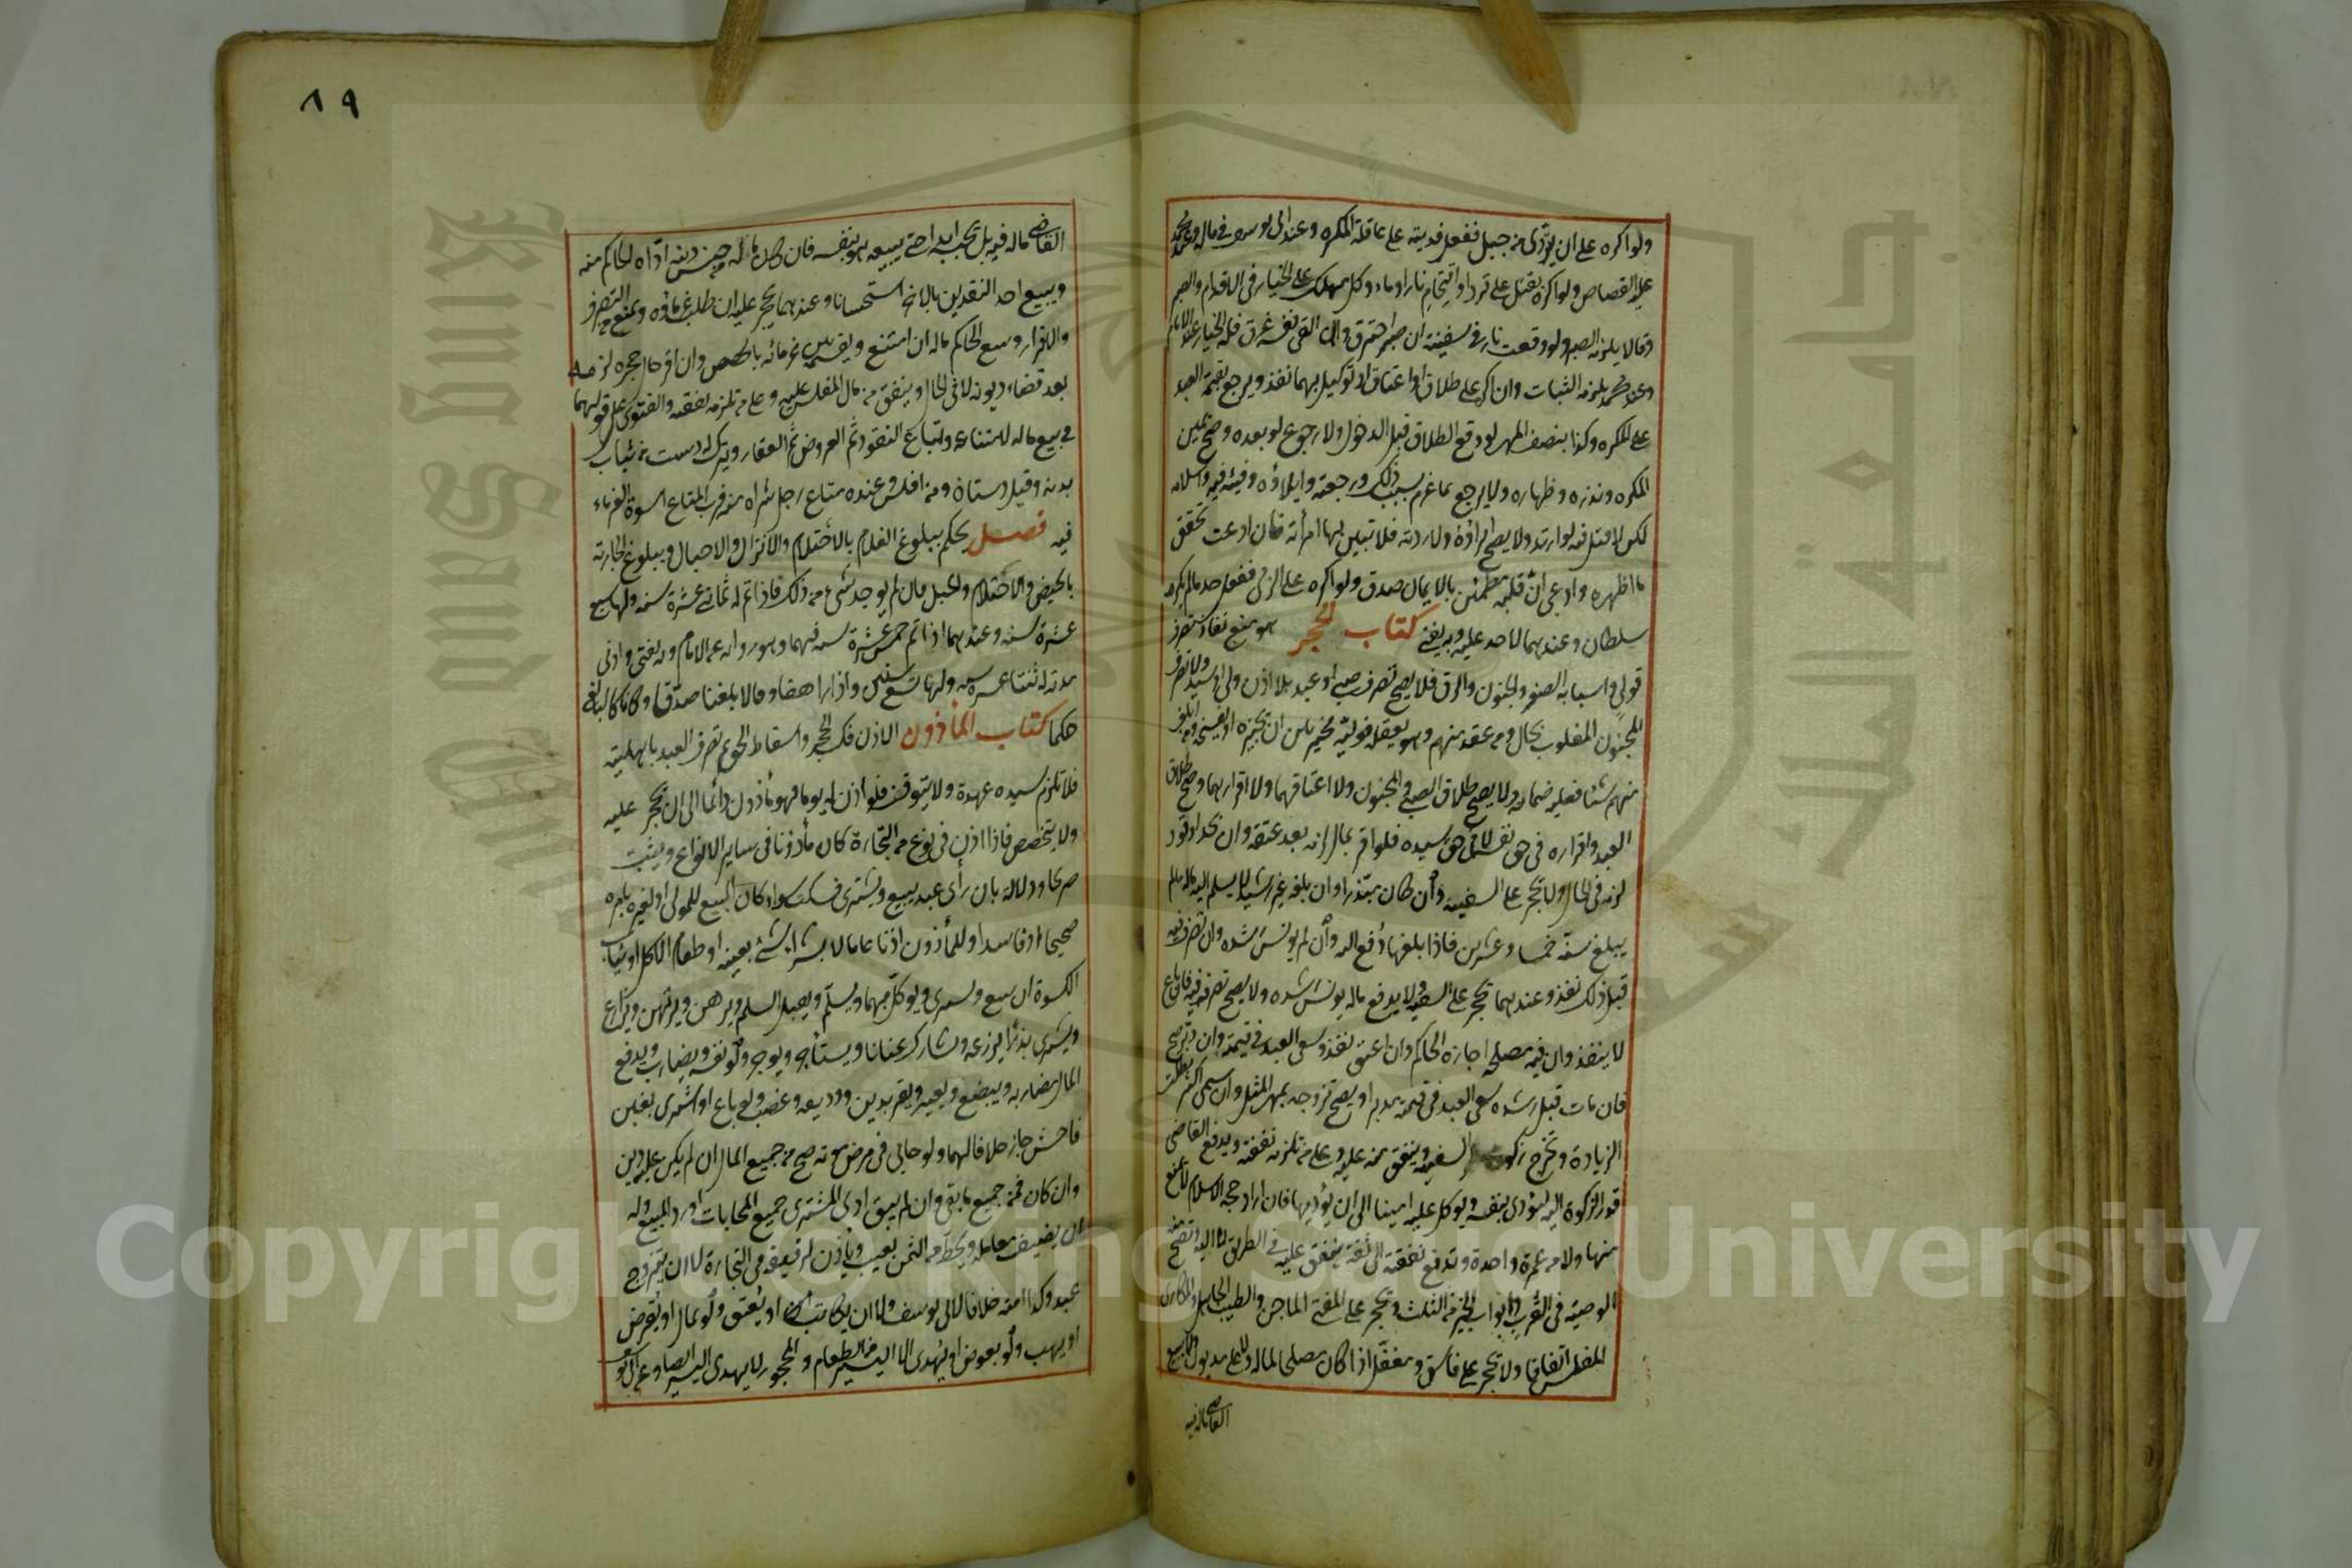 ولو اكره على ان يتردى من جبل ففعل فديته على عاقلة المكره وعند ابى يوسف فى ماله وعند محمد
عليه القصاص ولو اكره بقتل على ترد او اقتحام نار او ماء وكل مهلك فله الخيار فى الاقدام والصبر
وقالا يلزمه الصبر ولو وقعت نار فى سفينة ان صبر احترق وان القى نفسه غرق فله الخيار عند الامام
وعند محمد يلزمه الثبات وان اكره على طلاق او اعتاق او توكيل بهما نفذ ويرجع بقيمة العبد
على المكره وكذا بنصف المهر لو وقع الطلاق قبل الدخول ولا رجوع لو بعده وصح يمين
المكره ونذره وظهاره ولا يرجع بما غرم بسبب ذلك ورجعته وايلاؤه وفيئه فيه واسلامه
لكن لا قتل فيه لو ارتد ولا يصح ابراؤه ولا ردته فلا تبين بها امرأته فان ادعت تحقق
ما اظهره وادعى ان قلبه مطمئن بالايمان صدق ولو اكره على الزنى ففعل حد ما لم يكرهه
سلطان وعندهما لا حد عليه وبه يفتى كتاب الحجر هو منع نفاذ تصرف
قولى واسبابه الصغر والجنون والرق فلا يصح تصرف صبى او عبد بلا اذن ولى او سيد ولا تصرف
المجنون المغلوب بحال ومن عقد منهم وهو يعقله فوليه مخير بين ان يجيزه او يفسخه ومن اتلف
منهم شيئا فعليه ضمانه ولا يصح طلاق الصبى والمجنون ولا اعتاقهما ولا اقرارهما وصح طلاق
العبد واقراره فى حق نفسه لا فى حق سيده فلو اقر بمال لزمه بعد عتقه وان بحد او قود
لزمه فى الحال ولا يحجر على السفيه وان كان مبذرا وان بلغ غير رشيد لا يسلم اليه ماله ما لم
يبلغ سنه خمسا وعشرين فاذا بلغها دفع اليه وان لم يونس رشده وان تصرف فيه
قبل ذلك نفذ وعندهما يحجر على السفيه ولا يدفع ماله ما لم يونس رشده ولا يصح تصرفه فيه فان باع
لا ينفذ وان فيه مصلحة اجازه الحاكم وان اعتق نفذ وسعى العبد فى قيمته وان دبر صح
فان مات قبل رشده سعى العبد فى قيمته مدبرا ويصح تزوجه بمهر المثل وان سمى اكثر بطلت
الزيادة وتخرج زكوة السفيه وينفق منه عليه وعلى من تلزمه نفقته ويدفع القاضى
قدر الزكوة اليه ليؤدى بنفسه ويوكل عليه امينا الى ان يؤديها فان اراد حجة الاسلام لا يمنع
منها ولا من عمرة واحدة وتدفع نفقته الى ثقة ينفق عليه فى الطريق لا اليه وتصح منه
الوصية فى القرب وابواب الخير من الثلث ويحجر على المفتى الماجن والطبيب الجاهل والمكارى
المفلس اتفاقا ولا يحجر على فاسق ومغفل اذا كان مصلحا لماله ولا على مديون ولا يبيع
القاضى ماله فيه
٨٩
القاضى ماله فيه بل يحبسه ابدا حتى يبيعه هو بنفسه فان كان ماله من جنس دينه اداه الحاكم منه
ويبيع احد النقدين بالاخر استحسانا وعندهما يحجر عليه ان طلب غرماؤه ويمنع من التصرف
والاقرار ويبيع الحاكم ماله ان امتنع ويقسمه بين غرمائه بالحصص وان اقر حال حجره لزمه
بعد قضاء ديونه لا فى الحال وينفق من مال المفلس عليه وعلى من تلزمه نفقته والفتوى على قولهما
فى بيع ماله لامتناعه وتباع النقود ثم العروض ثم العقار ويترك له دست من ثياب
بدنه وقيل دستان ومن افلس وعنده متاع رجل شراه منه فرب المتاع اسوة الغرماء
فيه فصل يحكم ببلوغ الغلام بالاحتلام والانزال والاحبال وببلوغ الجارية
بالحيض والاحتلام والحبل فان لم يوجد شىء من ذلك فاذا تم له ثمانى عشرة سنة ولها سبع
عشرة سنة وعندهما اذا تم خمس عشرة سنة فيهما وهو رواية عن الامام وبه يفتى وادنى
مدته له ثنتا عشرة سنة ولها تسع سنين واذا راهقا وقالا بلغنا صدقا وكانا كالبالغ
حكما كتاب المأذون الاذن فك الحجر واسقاط الحق ثم تصرف العبد باهليته
فلا تلزم سيده عهدة ولا يتوقف فلو اذن له يوما فهو مأذون دائما الى ان يحجر عليه
ولا يتخصص فاذا اذن فى نوع من التجارة كان مأذونا فى ساير الانواع ويثبت
صريحا ودلالة بان رأى عبده يبيع ويشترى فسكت سواء كان البيع للمولى او لغيره بامره
صحيحا او فاسدا وللمأذون اذنا عاما لا بشراء شىء بعينه او طعام الاكل او ثياب
الكسوة ان يبيع ويشترى ويوكل بهما ويسلم ويقبل السلم ويرهن ويرتهن ويزارع
ويشترى بذرا يزرعه ويشارك عنانا ويستأجر ويوجر ولو نفسه ويضارب ويدفع
المال مضاربة ويبضع ويعير ويقر بدين ووديعة وغصب ولو باع او اشترى بغبن
فاحش جاز خلافا لهما ولو حابى فى مرض موته صح من جميع المال ان لم يكن عليه دين
وان كان فمن جميع ما بقى وان لم يبق ادى المشترى جميع المحابات او رد المبيع وله
ان يضيف معامله ويحط من الثمن بعيب ويأذن لرقيقه فى التجارة لا ان يتزوج
عبده وكذا امته خلافا لابى يوسف ولا ان يكاتب او يعتق ولو بمال او يقرض
او يهب ولو بعوض او يهدى الا اليسير من الطعام والمحجور لا يهدى اليسير ايضا وعن ابى يوسف
Copyright © King Saud University
King Saud University
جامعة الملك سعود